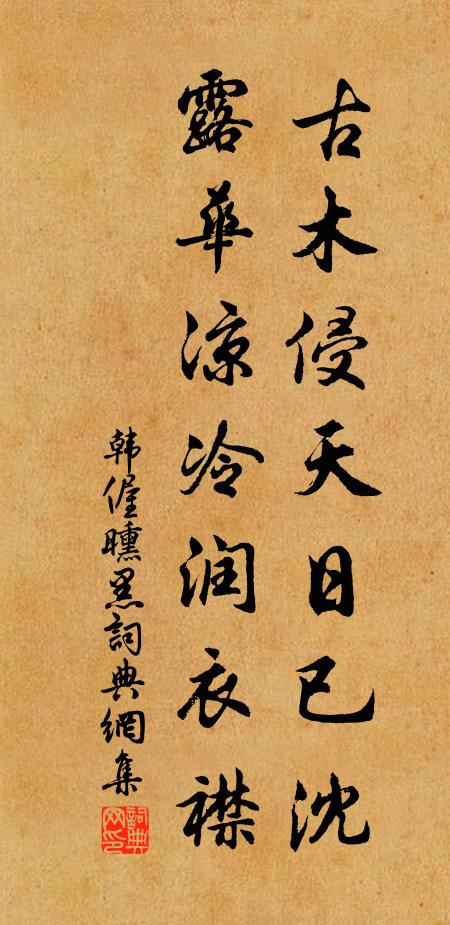 古木侵天日已沈
露華凉冷润衣襟
韩偓曛黑詞典網集
詞典網印